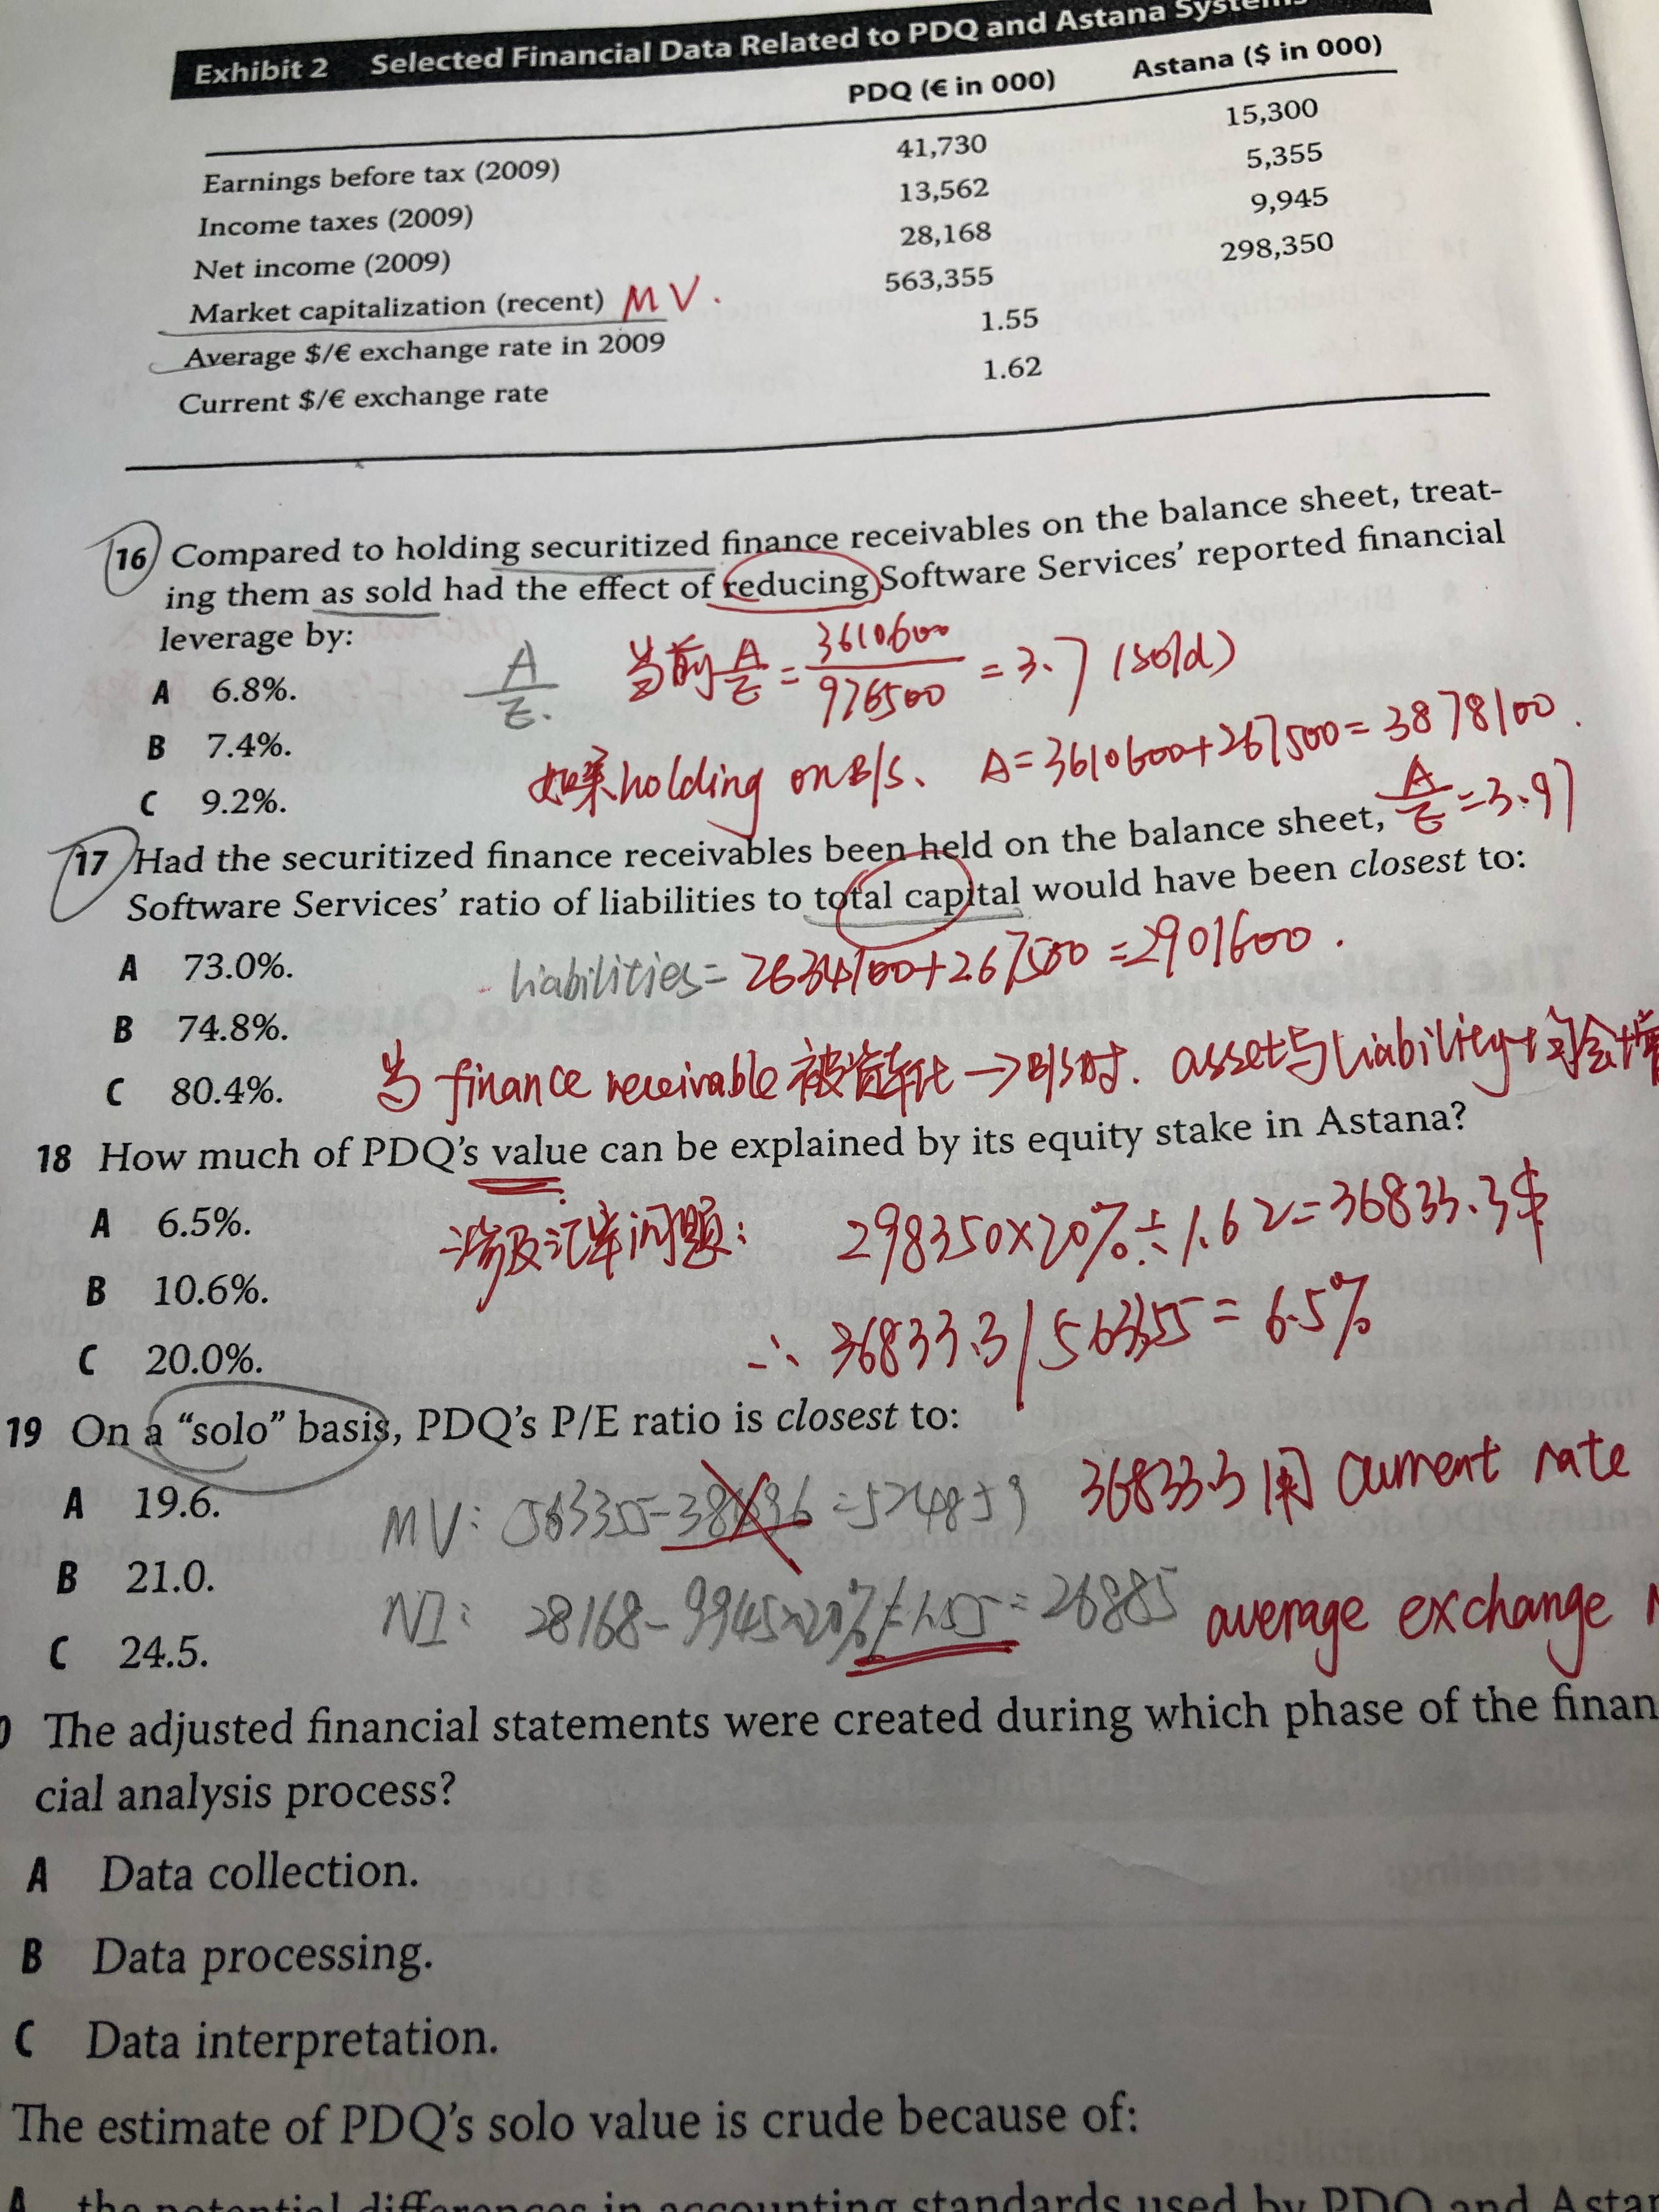 Exhibit 2 Selected Financial Data Related to PDQ and Astana Systems
PDQ (€ in 000) Astana ($ in 000)
Earnings before tax (2009) 41,730 15,300
Income taxes (2009) 13,562 5,355
Net income (2009) 28,168 9,945
Market capitalization (recent) MV. 563,355 298,350
Average $/€ exchange rate in 2009 1.55
Current $/€ exchange rate 1.62
16 Compared to holding securitized finance receivables on the balance sheet, treat-
ing them as sold had the effect of reducing Software Services' reported financial
leverage by:
A 6.8%.
B 7.4%.
C 9.2%.
A/E.
当前 A/E = 3610600/976500 = 3.7 (sold)
如果 holding on B/S、 A=3610600+267500=3878100.
A/E=3.97
17 Had the securitized finance receivables been held on the balance sheet,
Software Services' ratio of liabilities to total capital would have been closest to:
A 73.0%.
B 74.8%.
C 80.4%.
liabilities= 2634100+267500 =2901600.
当 finance receivable 被 → B/S时. asset与liability 会增
18 How much of PDQ's value can be explained by its equity stake in Astana?
A 6.5%.
B 10.6%.
C 20.0%.
涉及汇率问题: 298350×20%÷1.62=36833.3$
∴ 36833.3/563355 = 6.5%
19 On a "solo" basis, PDQ's P/E ratio is closest to:
A 19.6.
B 21.0.
C 24.5.
MV: 563355- =524859 36833.3用 current rate
NI: 28168-9945×20%÷1.55=26885 average exchange
The adjusted financial statements were created during which phase of the finan
cial analysis process?
A Data collection.
B Data processing.
C Data interpretation.
The estimate of PDQ's solo value is crude because of:
A the potential differences in accounting standards used by PDQ and Astan